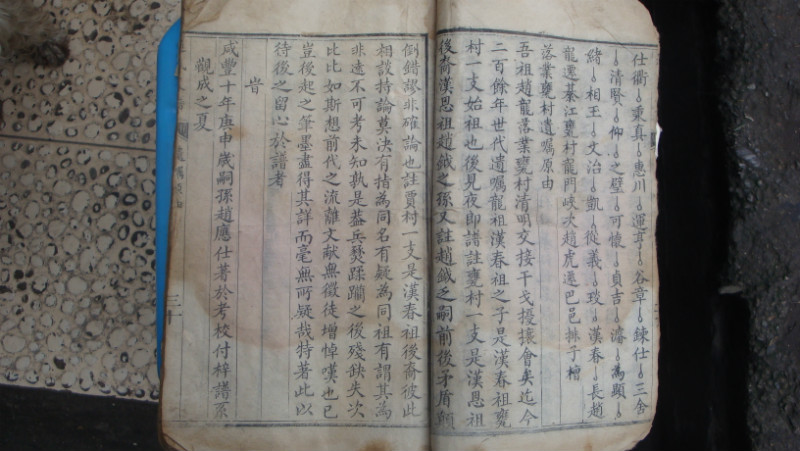 仕衢 秉真 惠川 運亨 谷章 練仕 三舍
清賢 仰 之璧 可懷 貞吉 濬 為顯
緒 相王 文治 凱 從義 琰 漢春 長趙
龍遷綦江甕村龍門峽次趙虎遷巴邑抹子檜
落業甕村遺囑原由
吾祖趙龍落業甕村清明交接干戈擾攘會矣迄今
二百餘年世代遺囑龍祖漢春祖之子是漢春祖甕
村一支始祖也後見夜郎譜註甕村一支是漢恩祖
後裔漢恩祖趙鉞之孫又註趙鉞之嗣前後矛盾顛
倒錯謬非確論也註賈村一支是漢春祖後裔彼此
相談持論莫決有指為同名有疑為同祖有謂其為
非遠不可考未知孰是蓋兵燹蹂躪之後殘缺失次
比比如斯想前代之流離文献無徵徒增悼嘆也已
豈後起之筆墨盡得其詳而毫無所疑哉特著此以
待後之留心於譜者
旹
咸豐十年庚申歲嗣孫趙應仕著於考校付梓譜系
觀成之夏
三十